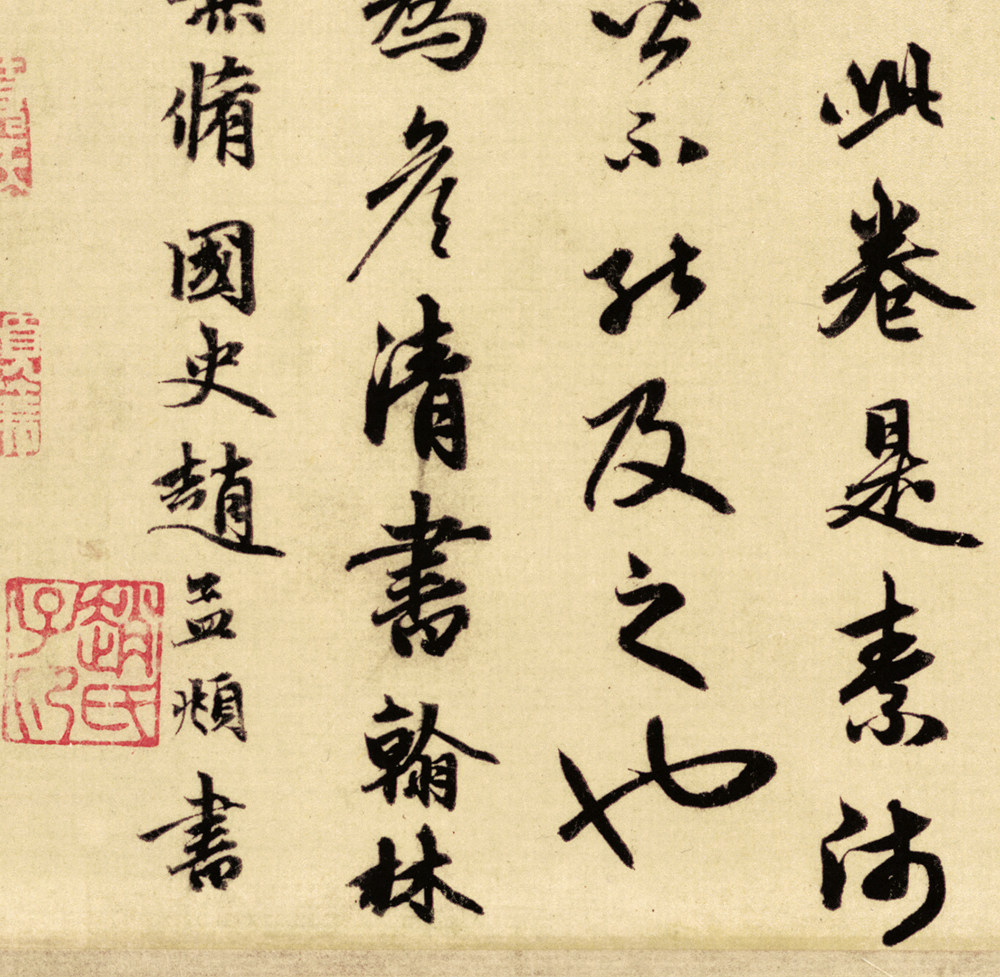 此卷是素
不能及之也
為彥清書翰林
脩國史趙孟頫書
趙氏子昂